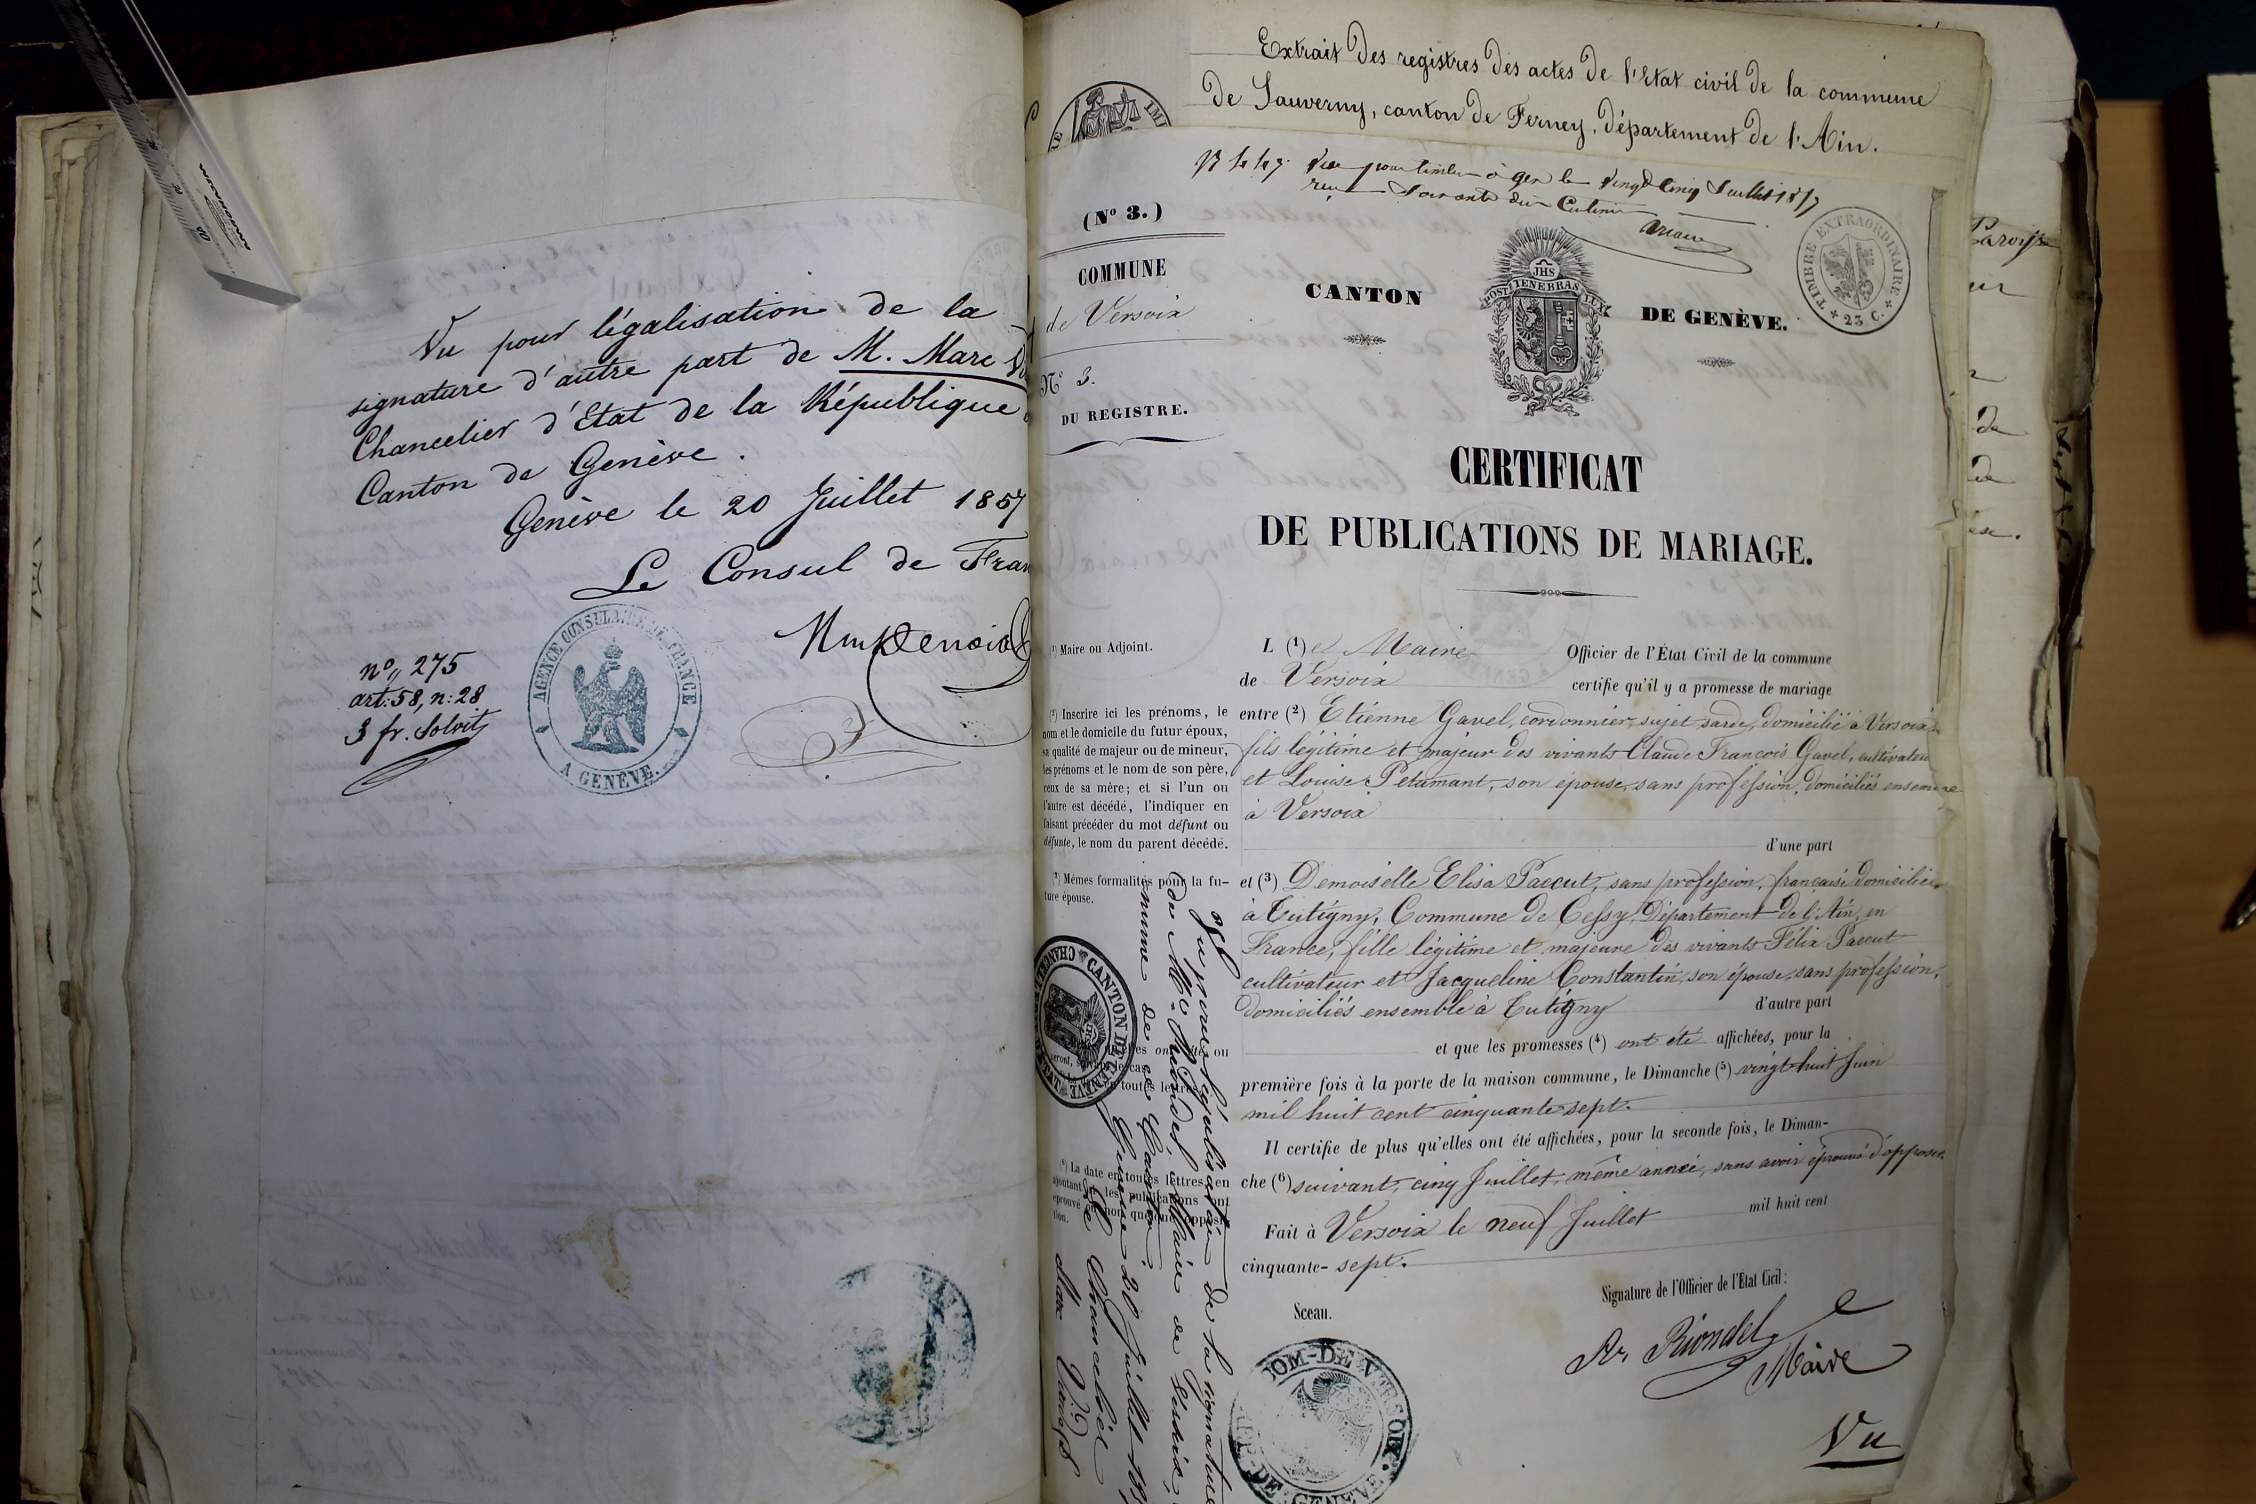 Vu pour légalisation de la
signature d'autre part de M. Marc
Chancelier d'Etat de la République
Canton de Genève.
Genève le 20 Juillet 1857
Le Consul de Fran
n° 275
art: 58, n: 28
3 fr. Soloit
AGENCE CONSULAIRE DE FRANCE
A GENÈVE.
Extrait des registres des actes de l'Etat civil de la commune
de Sauverny, canton de Ferney, département de l'Ain.
Vu pour timbre à Gex le vingt cinq Juillet 1857
(N° 3.)
COMMUNE
de Versoix
N° 3.
DU REGISTRE.
CANTON
JHS
POST TENEBRAS LUX
DE GENÈVE.
TIMBRE EXTRAORDINAIRE
23 C.
CERTIFICAT
DE PUBLICATIONS DE MARIAGE.
(1) Maire ou Adjoint.
L (1) e Maire Officier de l'État Civil de la commune
de Versoix certifie qu'il y a promesse de mariage
(2) Inscrire ici les prénoms, le
nom et le domicile du futur époux,
sa qualité de majeur ou de mineur,
les prénoms et le nom de son père,
ceux de sa mère; et si l'un ou
l'autre est décédé, l'indiquer en
faisant précéder du mot défunt ou
défunte, le nom du parent décédé.
entre (2) Etienne Gavel, cordonnier, sujet sarde, domicilié à Versoix,
fils légitime et majeur des vivants Claude François Gavel, cultivateur
et Louise Petamant, son épouse, sans profession, domiciliés ensemble
à Versoix
d'une part
(3) Mêmes formalités pour la fu-
ture épouse.
et (3) Demoiselle Elisa Paccut, sans profession, française domiciliée
à Tutigny, Commune de Cessy, Département de l'Ain, en
France, fille légitime et majeure des vivants Félix Paccut
cultivateur et Jacqueline Constantin, son épouse, sans profession,
domiciliés ensemble à Tutigny d'autre part
et que les promesses (4) ont été affichées, pour la
première fois à la porte de la maison commune, le Dimanche (5) vingt-huit Juin
mil huit cent cinquante-sept.
Il certifie de plus qu'elles ont été affichées, pour la seconde fois, le Diman-
che (6) suivant, cinq Juillet, même année, sans avoir éprouvé d'opposit
Fait à Versoix le neuf Juillet mil huit cent
cinquante- sept.
Signature de l'Officier de l'Etat Cicil:
Sceau.
Riondel
Maire
Vu
Vu pour légalisation de la signature
de Mr. Riondel, Maire de Versoix,
commune de ce Canton.
Genève 20 Juillet 185
Le Chancelier
Marc
CANTON DE GENÈVE